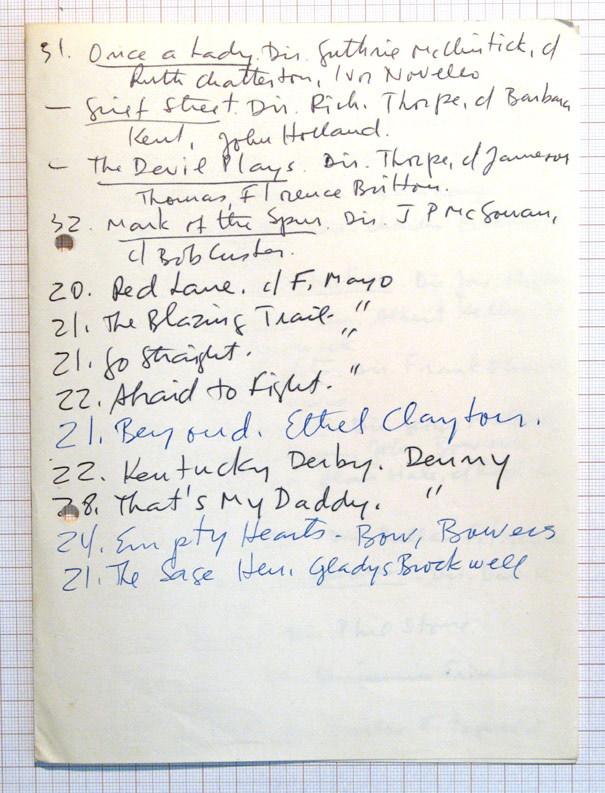 31. Once a Lady. Dir. Guthrie McClintick, c/
Ruth Chatterton, Ivor Novello
— Grief Street. Dir. Rich. Thorpe, c/ Barbara
Kent, John Holland.
— The Devil Plays. Dir. Thorpe, c/ Jameson
Thomas, Florence Britton.
32. Mark of the Spur. Dir. J P McGowan,
c/ Bob Custer.
20. Red Lane. c/ F. Mayo
21. The Blazing Trail. "
21. Go Straight. "
22. Afraid to Fight. "
21. Beyond. Ethel Clayton.
22. Kentucky Derby. Denny
28. That's My Daddy. "
24. Empty Hearts - Bow, Bowers
21. The Sage Hen. Gladys Brockwell
Phil Stone